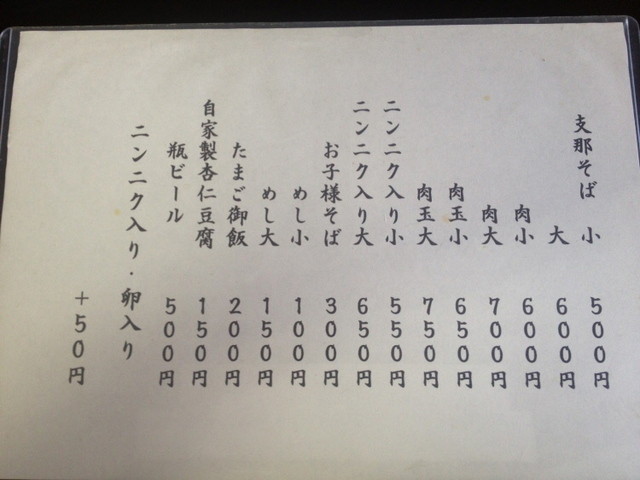 支那そば 小 500円
大 600円
肉小 600円
肉大 700円
肉玉小 650円
肉玉大 750円
ニンニク入り小 550円
ニンニク入り大 650円
お子様そば 300円
めし小 100円
めし大 150円
たまご御飯 200円
自家製杏仁豆腐 150円
瓶ビール 500円
ニンニク入り・卵入り
+50円